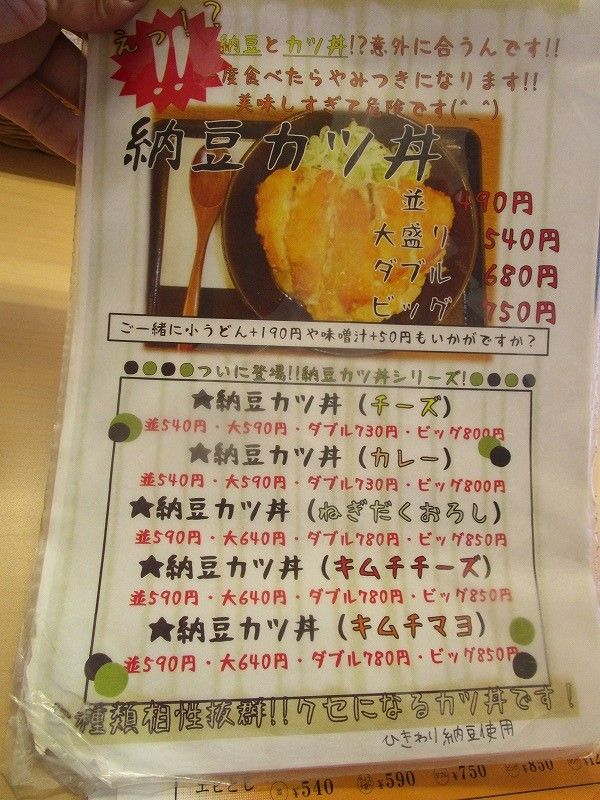 えっ!?
!!
納豆とカツ丼!?意外に合うんです!!
度食べたらやみつきになります!!
美味しすぎて危険です(^_^)
納豆カツ丼
並 490円
大盛り 540円
ダブル 680円
ビッグ 750円
ご一緒に小うどん+190円や味噌汁+50円もいかがですか?
ついに登場!!納豆カツ丼シリーズ!
★納豆カツ丼(チーズ)
並540円・大590円・ダブル730円・ビッグ800円
★納豆カツ丼(カレー)
並540円・大590円・ダブル730円・ビッグ800円
★納豆カツ丼(ねぎだくおろし)
並590円・大640円・ダブル780円・ビッグ850円
★納豆カツ丼(キムチチーズ)
並590円・大640円・ダブル780円・ビッグ850円
★納豆カツ丼(キムチマヨ)
並590円・大640円・ダブル780円・ビッグ850円
種類相性抜群!!クセになるカツ丼です!
ひきわり納豆使用
¥540 ¥590 ¥750 ¥850